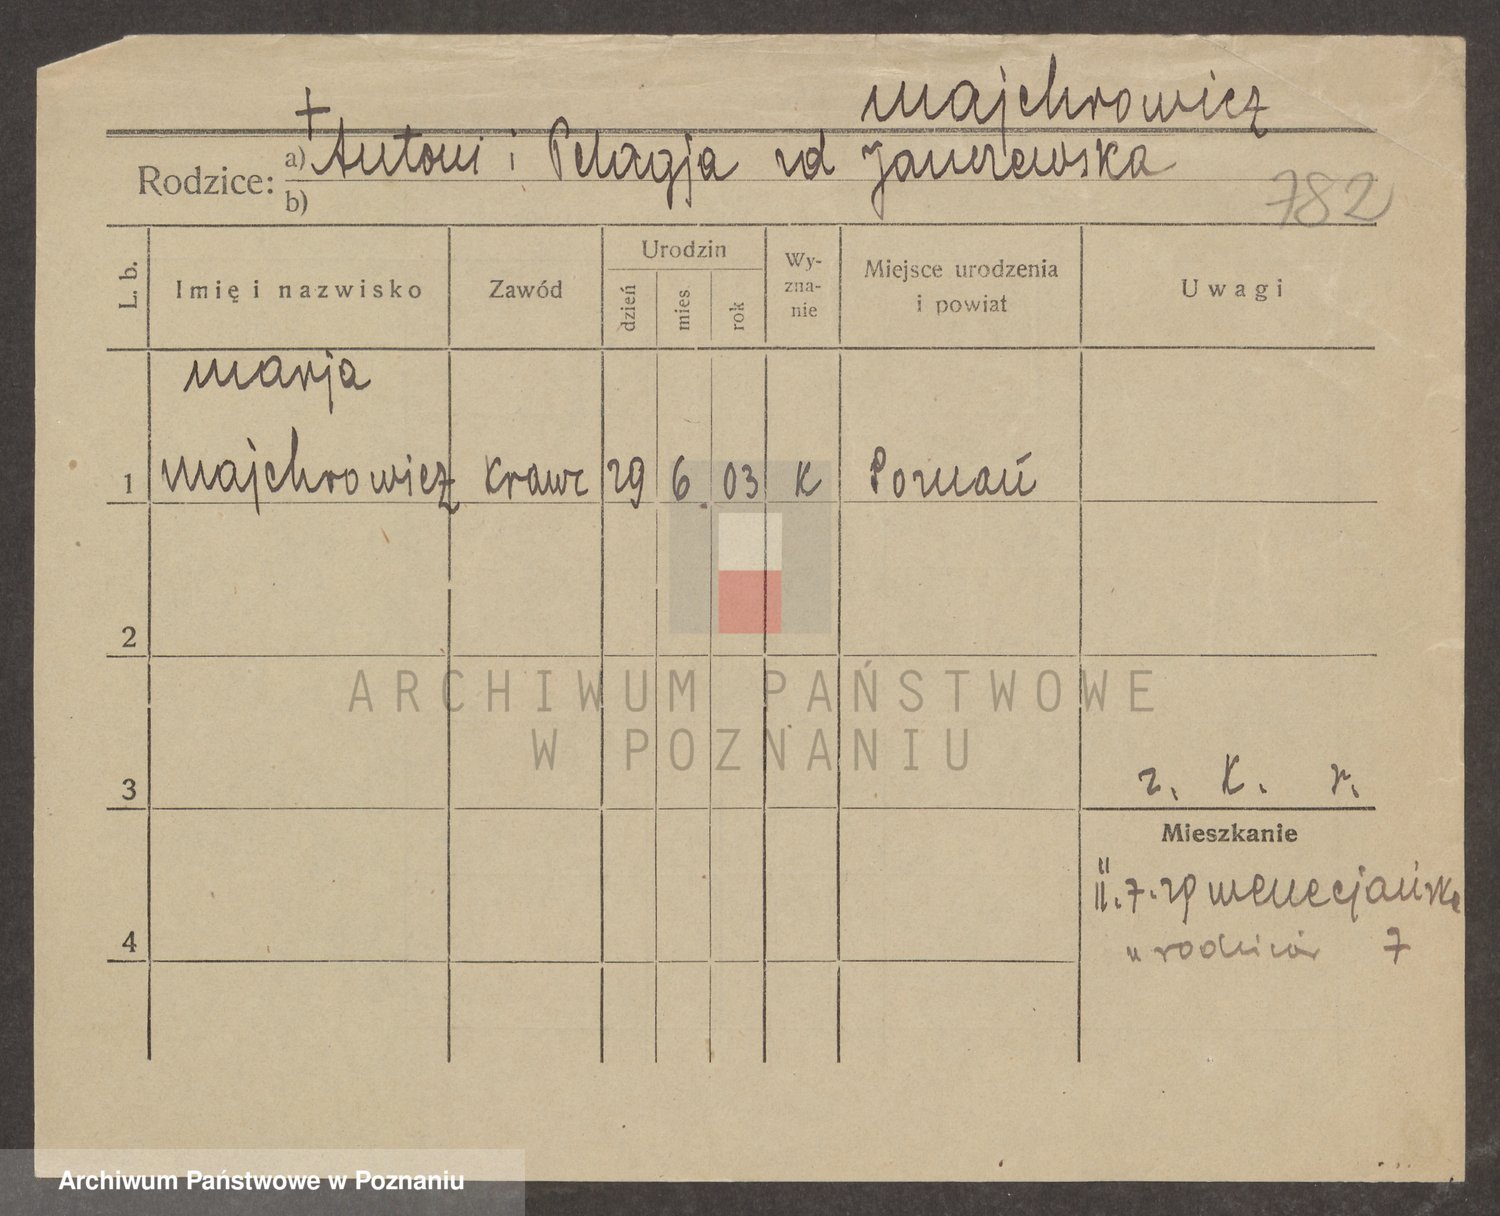 Majchrowicz
+
Rodzice: a) Antoni i Pelagja zd Janczewska
b)
782
L. b. Imię i nazwisko Zawód Urodzin dzień mies. rok Wy-zna-nie Miejsce urodzenia i powiat Uwagi
Marja
1 Majchrowicz Krawc 29 6. 03 K Poznań
2
ARCHIWUM PAŃSTWOWE
W POZNANIU
3
z. K. r.
Mieszkanie
11.7.29 Wenecjańska
4
u rodziców 7
Archiwum Państwowe w Poznaniu